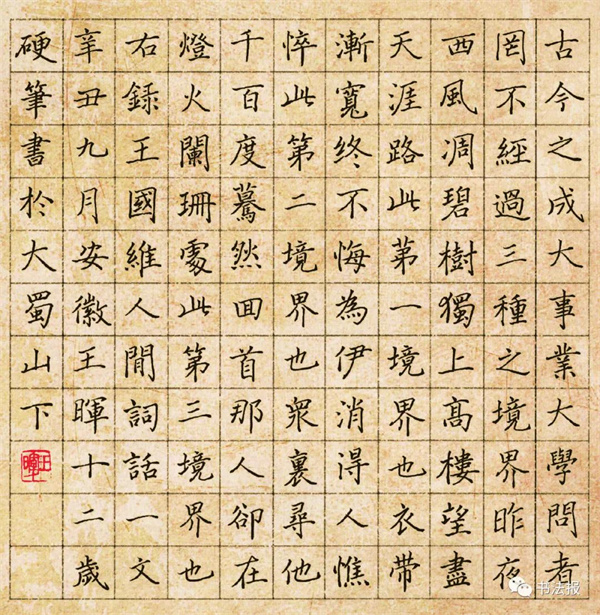 古今之成大事業大學問者
罔不經過三種之境界昨夜
西風凋碧樹獨上高樓望盡
天涯路此第一境界也衣带
漸寬終不悔為伊消得人憔
悴此第二境界也眾裏尋他
千百度驀然回首那人卻在
燈火闌珊處此第三境界也
右錄王國維人間詞話一文
辛丑九月安徽王暉十二歲
硬筆書於大蜀山下
书法报